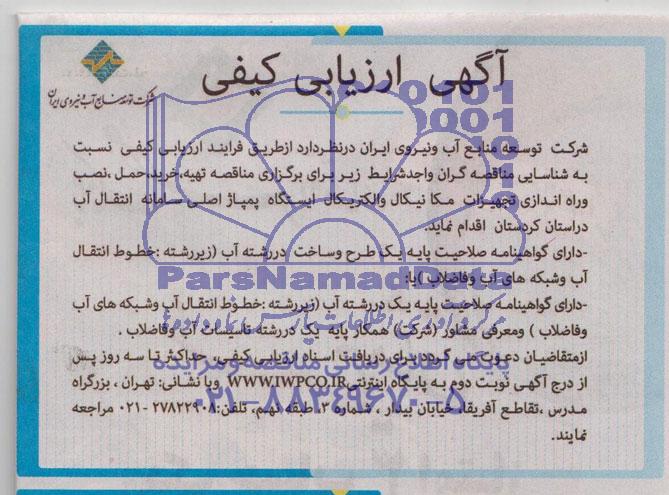 آگهی ارزیابی کیفی
شرکت توسعه منابع آب و نیروی ایران
شرکت توسعه منابع آب ونیروی ایران درنظردارد ازطریق فرایند ارزیابی کیفی نسبت
به شناسایی مناقصه گران واجدشرایط زیر برای برگزاری مناقصه تهیه،خرید،حمل ،نصب
وراه اندازی تجهیزات مکا نیکال والکتریکال ایستگاه پمپاژ اصلی سامانه انتقال آب
دراستان کردستان اقدام نماید.
-دارای گواهینامه صلاحیت پایه یک طرح وساخت دررشته آب (زیررشته :خطوط انتقال
آب وشبکه های آب وفاضلاب )یا:
-دارای گواهینامه صلاحیت پایه یک دررشته آب (زیررشته :خطوط انتقال آب وشبکه های آب
وفاضلاب ) ومعرفی مشاور (شرکت) همکار پایه یک دررشته تاسیسات آب وفاضلاب .
ازمتقاضیان دعوت می گردد برای دریافت اسناد ارزیابی کیفی، حداکثر تا سه روز پس
از درج آگهی نوبت دوم به پایگاه اینترنتیWWW.IWPCO.IR ویا نشانی: تهران ، بزرگراه
مدرس ،تقاطع آفریقا، خیابان بیدار ، شماره ۳، طبقه نهم، تلفن:۲۷۸۲۲۹۰۸-۰۲۱ مراجعه
نمایند.
ParsNamadData
پایگاه اطلاع رسانی مناقصه و مزایده
۰۲۱-۸۸۳۴۹۶۷۰-۵